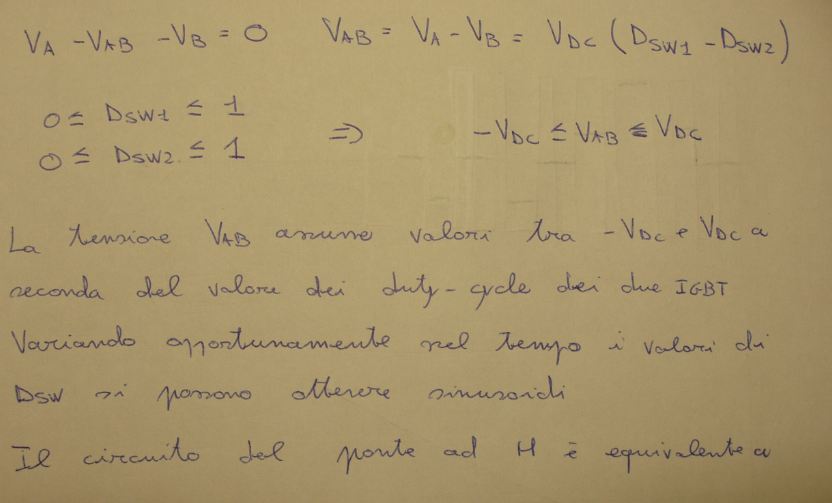 V_A - V_AB - V_B = 0   V_AB = V_A - V_B = V_DC (D_SW1 - D_SW2)
0 ≤ D_SW1 ≤ 1
⇒   -V_DC ≤ V_AB ≤ V_DC
0 ≤ D_SW2 ≤ 1
La tensione V_AB assume valori tra -V_DC e V_DC a
seconda del valore dei duty-cycle dei due IGBT
Variando opportunamente nel tempo i valori di
D_SW si possono ottenere sinusoidi
Il circuito del ponte ad H è equivalente a